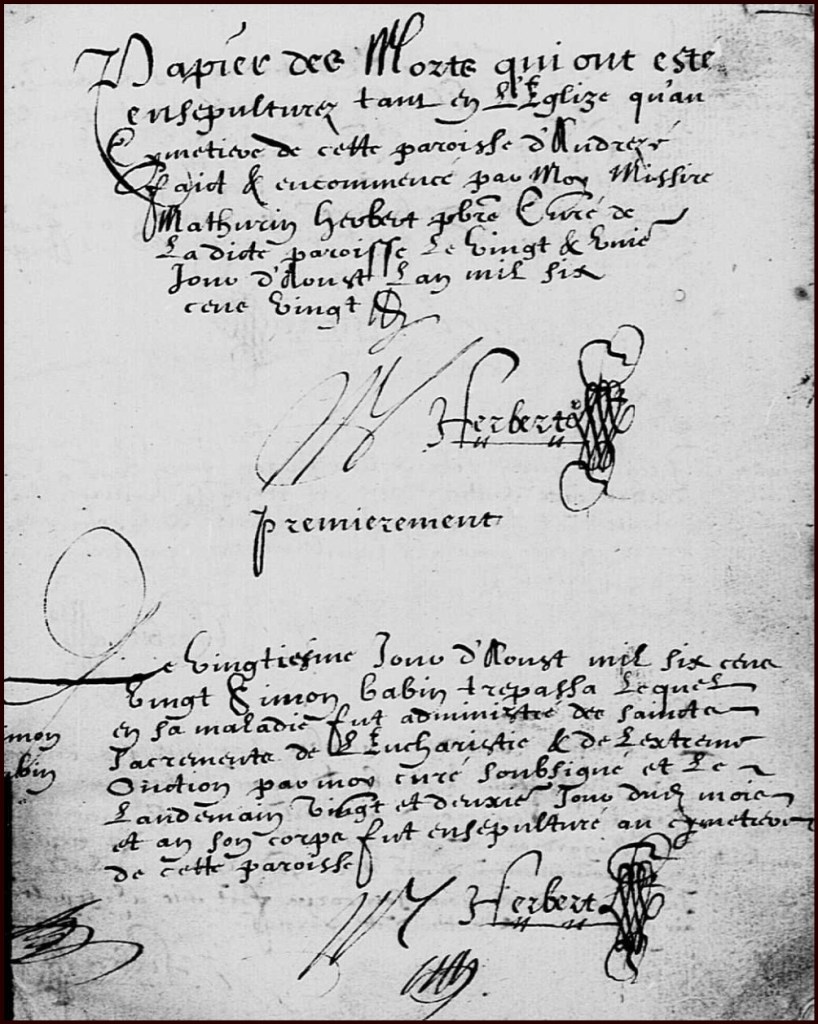 Papier des Morts qui ont esté
ensepulturez tant en L'Eglize qu'au
Cymetiere de cette paroisse d'Andrezé
faict & encommencé par Moy Missire
Mathurin Herbert pbre Curé de
La dicte paroisse Le vingt & unie
Jour d'Aoust Lan mil six
cens vingt
M Herbert
premierement
Le vingtiesme Jour d'Aoust mil six cens
vingt Simon babin trepassa Lequel
en sa maladie fut administré des saincts
Sacrements de L'Eucharistie & de Lextreme
Onction par moy curé soubsigné et Le
Landemain vingt et deuxie Jour dudz mois
et an son corps fut ensepulturé au cymetiere
de cette paroisse
imon
abin
M Herbert